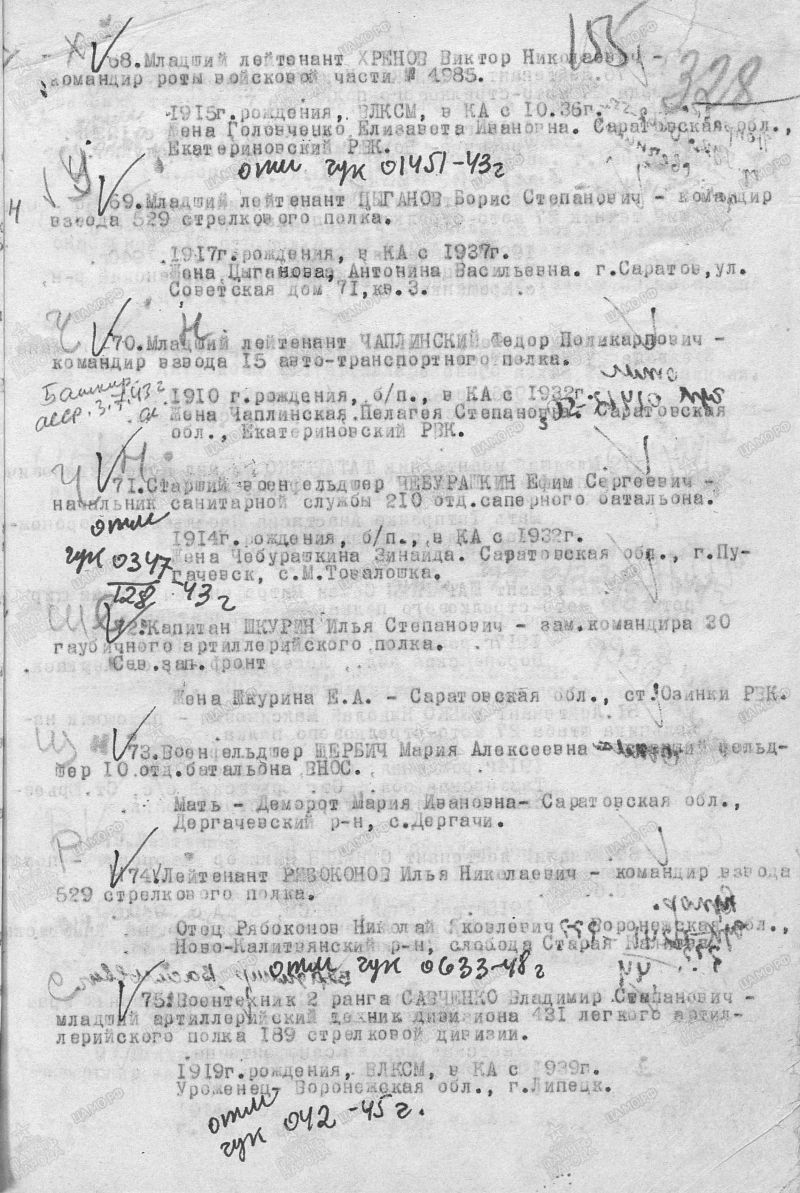 155
328
68.Младший лейтенант ХРЕНОВ Виктор Николаевич -
командир роты войсковой части № 4985.
1915г.рождения, ВЛКСМ, в КА с 10.36г.
Жена Головченко Елизавета Ивановна. Саратовская обл.,
Екатериновский РВК.
отм гук 01451-43г
Ц
69.Младший лейтенант ЦЫГАНОВ Борис Степанович - командир
взвода 529 стрелкового полка.
1917г.рождения, в КА с 1937г.
Жена Цыганова, Антонина Васильевна. г.Саратов,ул.
Советская дом 71,кв.3.
Ч Н
70.Младший лейтенант ЧАПЛИНСКИЙ Федор Поликарпович -
командир взвода 15 авто-транспортного полка.
Башкир
АССР.3.7.43г
1910 г.рождения, б/п., в КА с 1932г.
Жена Чаплинская Пелагея Степановна. Саратовская
обл., Екатериновский РВК.
Ч Н
71.Старший военфельдшер ЧЕБУРАШКИН Ефим Сергеевич -
начальник санитарной службы 210 отд.саперного батальона.
отм
гук 0347
128 -43г
1914г.рождения, б/п., в КА с 1932г.
Жена Чебурашкина Зинаида. Саратовская обл., г.Пу-
гачевск, с.М.Товалошка.
Ш
72.Капитан ШКУРИН Илья Степанович - зам.командира 30
гаубичного артиллерийского полка.
Сев.зап.фронт
Жена Шкурина Е.А. - Саратовская обл., ст.Озинки РВК.
Щ н
73.Военфельдшер ЩЕРБИЧ Мария Алексеевна - фельд-
шер 10.отд.батальона ВНОС.
Мать - Деморот Мария Ивановна- Саратовская обл.,
Дергачевский р-н, с.Дергачи.
Р
74.Лейтенант РЯБОКОНОВ Илья Николаевич - командир взвода
529 стрелкового полка.
Отец Рябоконов Николай Яковлевич - Воронежская обл.,
Ново-Калитвянский р-н, слобода Старая
отм гук 0633-48г
С
75.Воентехник 2 ранга САВЧЕНКО Владимир Степанович -
младший артиллерийский техник дивизиона 431 легкого артил-
лерийского полка 189 стрелковой дивизии.
1919г.рождения, ВЛКСМ, в КА с 1939г.
Уроженец- Воронежская обл., г.Липецк.
отм
гук 042 -45г.